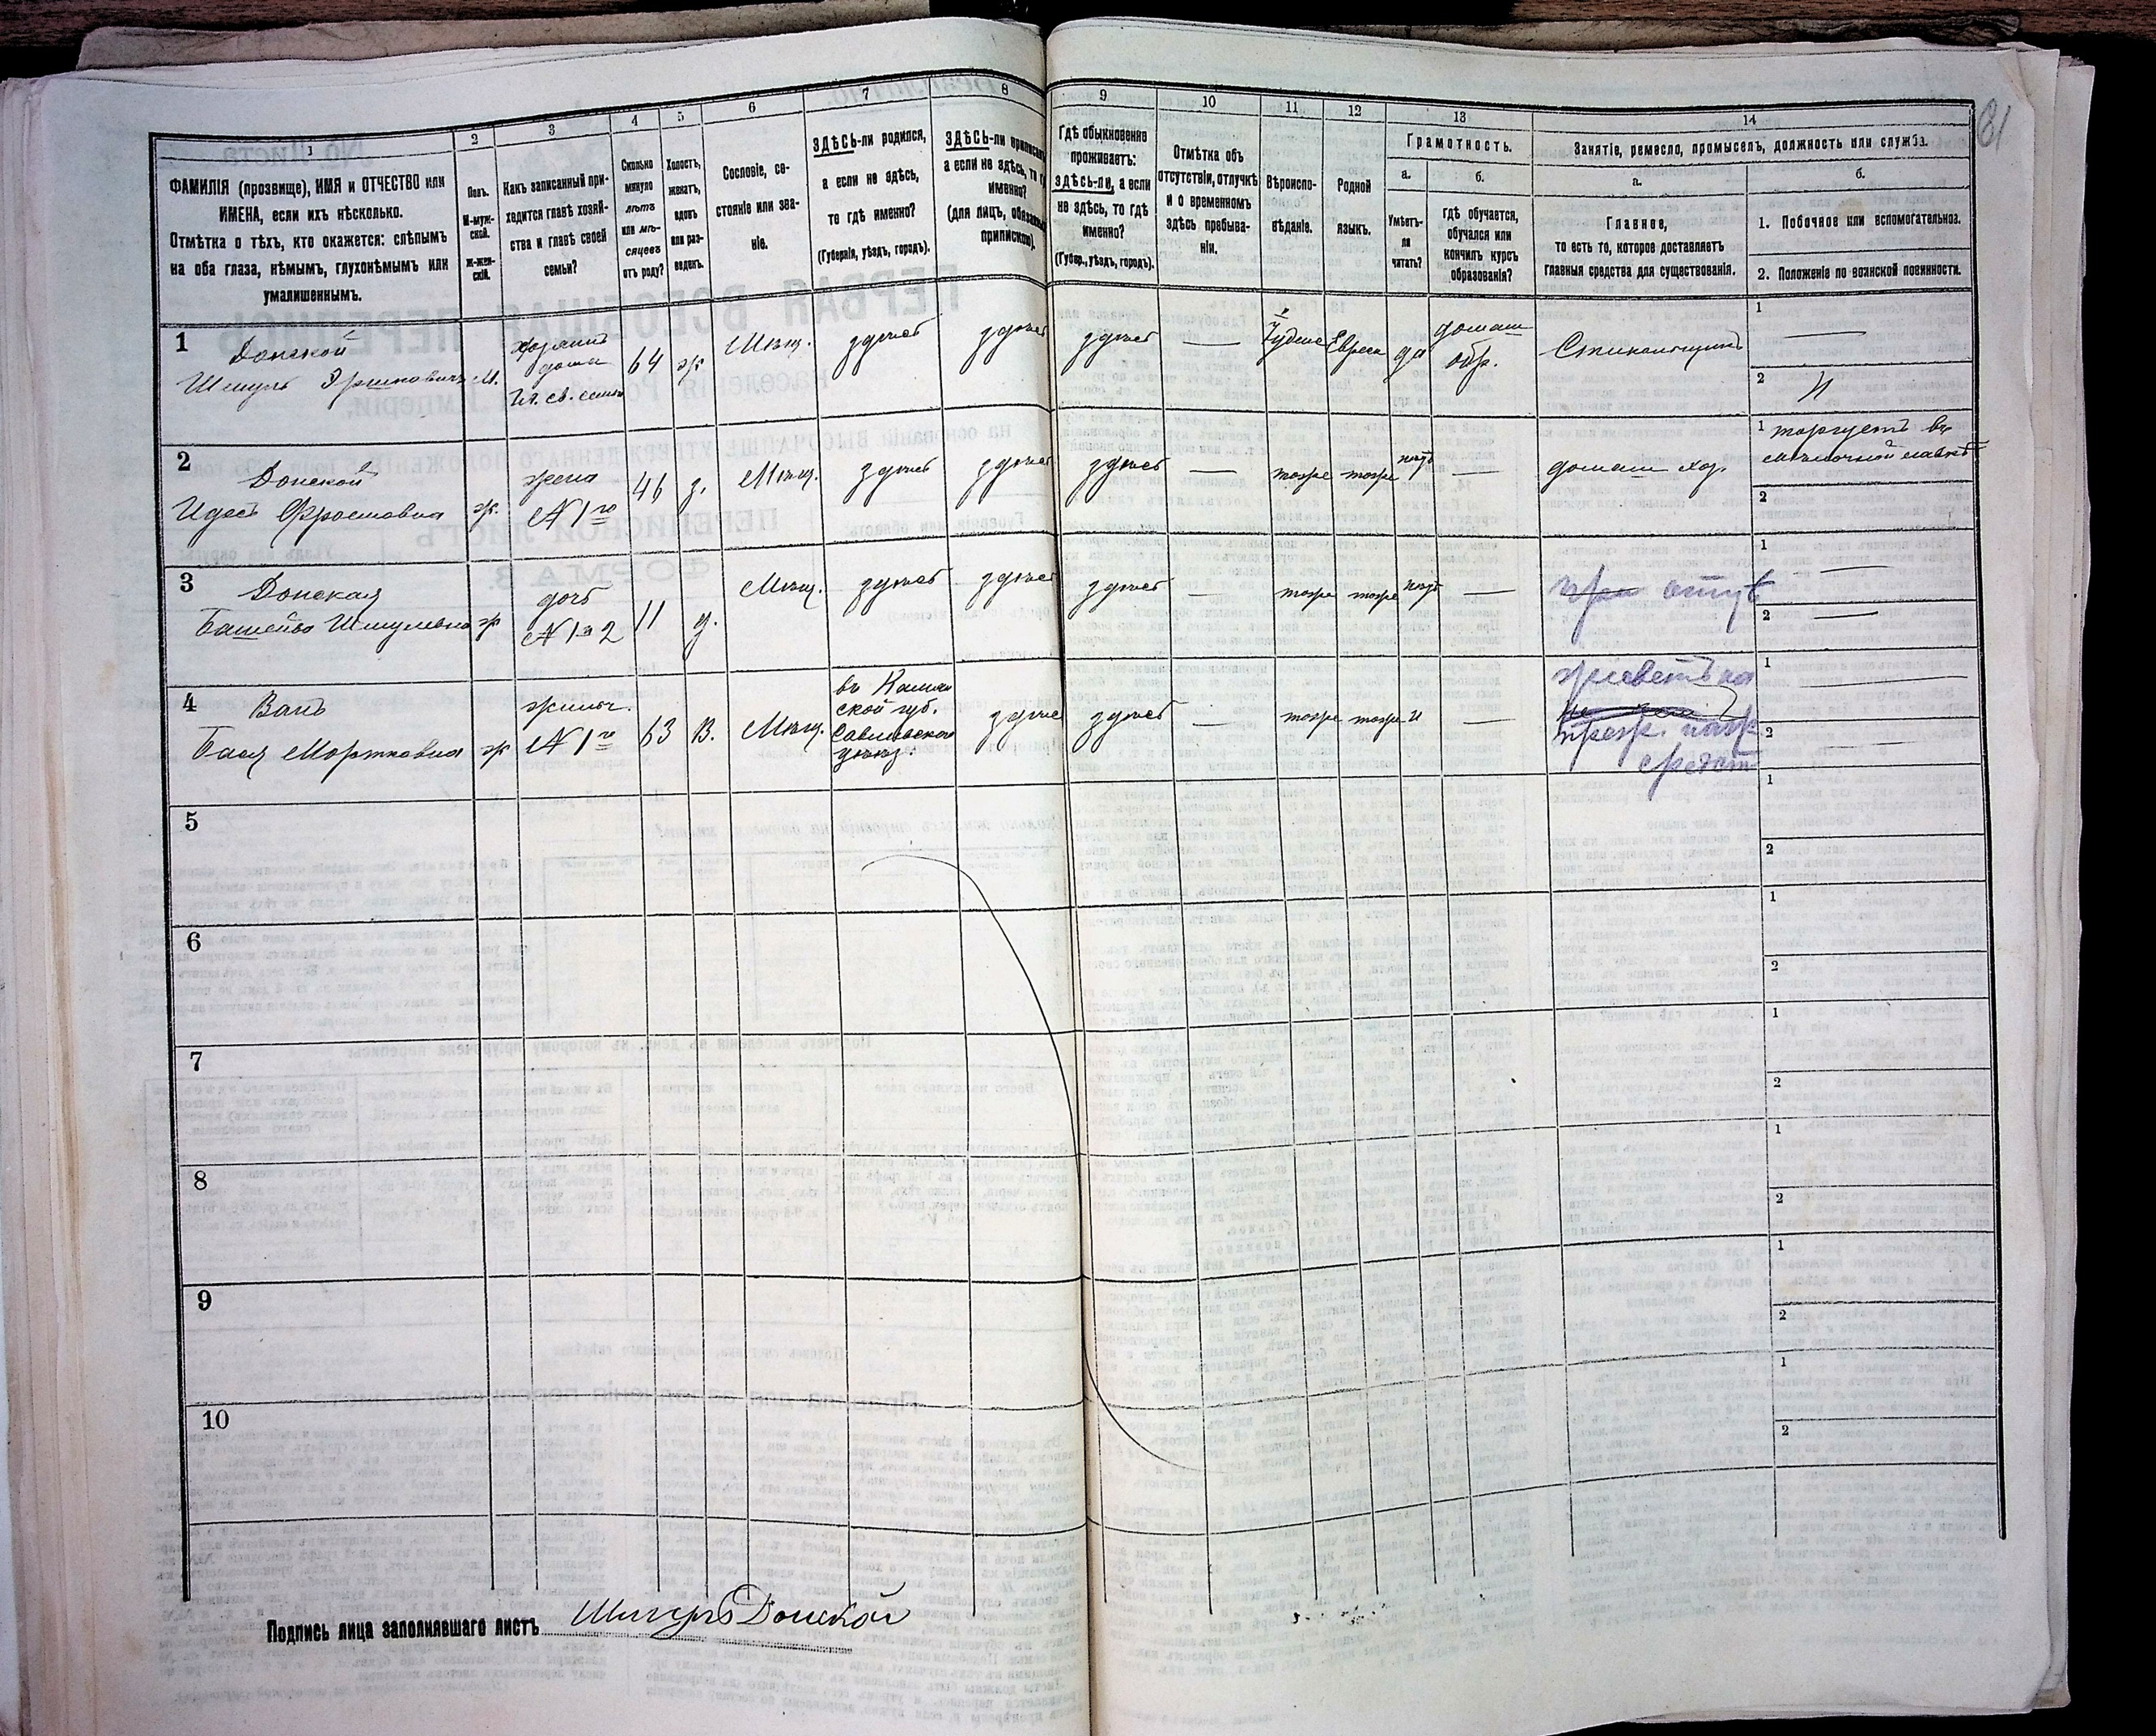 81
1 2 3 4 5 6 7 8 9 10 11 12 13 14
ФАМИЛІЯ (прозвище), ИМЯ и ОТЧЕСТВО или
ИМЕНА, если ихъ нѣсколько.
Отмѣтка о тѣхъ, кто окажется: слѣпымъ
на оба глаза, нѣмымъ, глухонѣмымъ или
умалишеннымъ.
Полъ.
М-муж-
ской.
Ж-жен-
скій.
Какъ записанный при-
ходится главѣ хозяй-
ства и главѣ своей
семьи?
Сколько
минуло
лѣтъ
или мѣ-
сяцевъ
отъ роду?
Холостъ,
женатъ,
вдовъ
или раз-
веденъ.
Сословіе, со-
стояніе или зва-
ніе.
ЗДѢСЬ-ли родился,
а если не здѣсь,
то гдѣ именно?
(Губернія, уѣздъ, городъ).
ЗДѢСЬ-ли приписанъ,
а если не здѣсь, то гдѣ
именно?
(для лицъ, обязанныхъ
припискою).
Гдѣ обыкновенно
проживаетъ:
ЗДѢСЬ-ли, а если
не здѣсь, то гдѣ
именно?
(Губер., уѣздъ, городъ).
Отмѣтка объ
отсутствіи, отлучкѣ
и о временномъ
здѣсь пребыва-
ніи.
Вѣроиспо-
вѣданіе.
Родной
языкъ.
Грамотность.
а.
Умѣетъ-
ли
читать?
б.
гдѣ обучается,
обучался или
кончилъ курсъ
образованія?
Занятіе, ремесло, промыселъ, должность или служба.
а.
Главное,
то есть то, которое доставляетъ
главныя средства для существованія.
б.
1. Побочное или вспомогательное.
2. Положеніе по воинской повинности.
1
Донской
Шмуль
М.
хозяинъ
дома
Гл. св. семьи
64
ж
Мѣщ.
здѣсь
здѣсь
здѣсь
—
Іудей
Еврей
да
домаш
обр.
1 —
2
2
Донской
ж.
жена
№ 1го
46
з.
Мѣщ.
здѣсь
здѣсь
здѣсь
—
тоже
тоже
нѣтъ
—
домаш хоз.
1 торгуетъ въ
мѣлочной лавкѣ
2
3
Донская
Башейва Шмулевна
ж
дочь
№ 1 и 2
11
д.
Мѣщ.
здѣсь
здѣсь
здѣсь
—
тоже
тоже
нѣтъ
—
при отцѣ
1 —
2 —
4
Бася Мортковна
ж
№ 1го
63
В.
Мѣщ.
въ
ской губ.
здѣсь
здѣсь
—
тоже
тоже
—
живетъ на
средст
1 —
2 —
5
1
2
6
1
2
7
1
2
8
1
2
9
1
2
10
1
2
Подпись лица заполнявшаго листъ Шмуль Донской